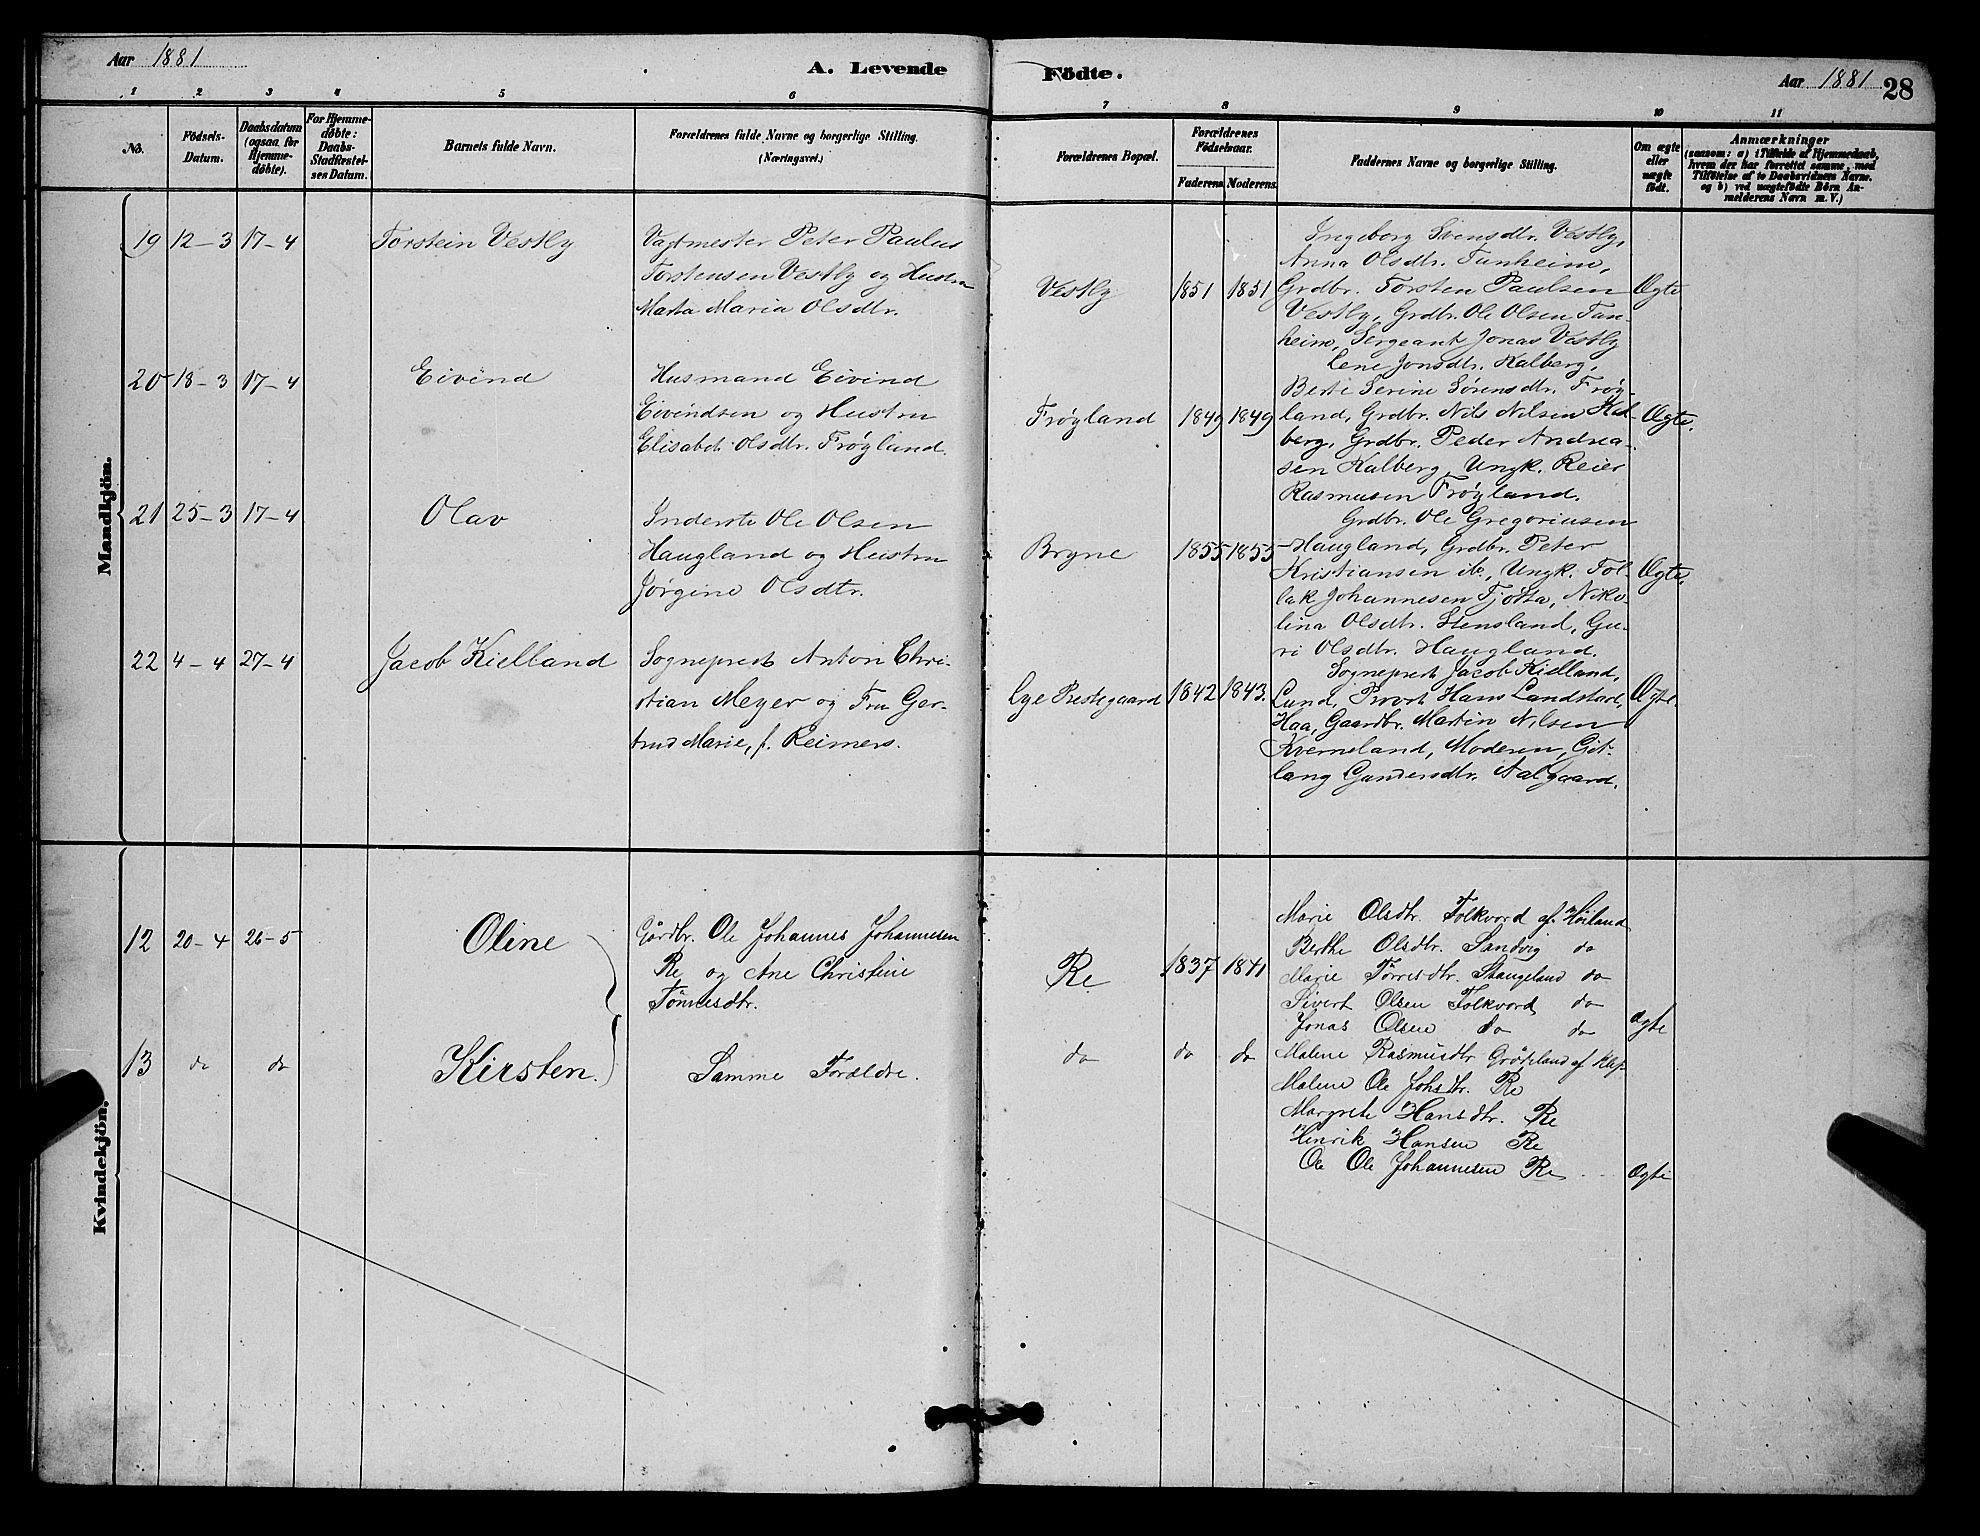 Aar 1881
A. Levende Födte.
Aar 1881 28
1 2 3 4 5 6 7 8 9 10 11
No.
Födsels-
Datum.
Daabsdatum
(ogsaa for
Hjemme-
döbte).
For Hjemme-
döbte:
Daabs-
Stadfæstel-
ses Datum.
Barnets fulde Navn.
Forældrenes fulde Navne og borgerlige Stilling.
(Næringsvei.)
Forældrenes Bopæl.
Forældrenes
Födselsaar.
Faderens Moderens
Faddernes Navne og borgerlige Stilling.
Om ægte
eller
uægte
födt.
Anmærkninger
(saasom: a) i Tilfælde af Hjemmedaab,
hvem der har forrettet samme, med
Tilföielse af to Daabsvidners Navne.
og b) ved uægtefödte Börn An-
melderens Navn m. V.)
Mandkjön.
19 12-3 17-4 Torstein Vestly
Vagtmester Peter Paulus
Torstensen Vestly og Hustru
Marta Maria Olsdtr.
Vestly 1851 1851
Ingeborg Svensdtr. Vestly,
Anna Olsdtr. Tunheim,
Grdbr. Torsten Paulsen
Vestly, Grdbr. Ole Olsen Tun-
heim, Sergeant Jonas Vestly
Ægte
20 18-3 17-4 Eivind
Husmand Eivind
Eivindsen og Hustru
Elisabet Olsdtr. Frøyland.
Frøyland 1849 1849
Lene Jonsdtr. Kalberg,
Berte Serine Sørensdtr. Frøy-
land, Grdbr. Nils Nilsen Kal-
berg, Grdbr. Peder Andrea-
sen Kalberg, Ungk. Reier
Rasmusen Frøyland.
Ægte.
21 25-3 17-4 Olav
Inderste Ole Olsen
Haugland og Hustru
Jørgine Olsdtr.
Bryne 1855 1855
Grdbr. Ole Gregoriusen
Haugland, Grdbr. Peter
Kristiansen ib., Ungk. Tol-
lak Johannesen Tjøtta, Niko-
lina Olsdtr. Stensland, Gu-
ri Olsdtr. Haugland.
Ægte.
22 4-4 27-4 Jacob Kielland
Sogneprest Anton Chri-
stian Meyer og Fru Ger-
trud Marie, f. Reimers.
Lye Prestegaard 1842 1843.
Sogneprest Jacob Kielland,
Lund, Provst Hans Landstad,
Haa, Gaardbr. Martin Nilsen
Kverneland, Moderen, Gut-
lang Gundersdtr. Aalgaard.
Ægte.
Kvindekjön.
12 20-4 26-5 Oline
Gårdbr. Ole Johannes Johannesen
Re og Ane Christine
Tönnesdtr.
Re 1837 1841
Marie Olsdtr. Folkvord af Höiland
Berthe Olsdtr. Sandvig do
Marie Törresdtr. Stangeland do
Sivert Olsen Folkvord do
Jonas Olsen do do
Ægte
13 do do Kirsten.
Samme Forældre.
do do do
Malene Rasmusdtr Grödeland af Klep
Malene Ole Johsdtr. Re
Margrete Hansdtr. Re
Henrik Hansen Re
Ole Ole Johannesen Re
Ægte